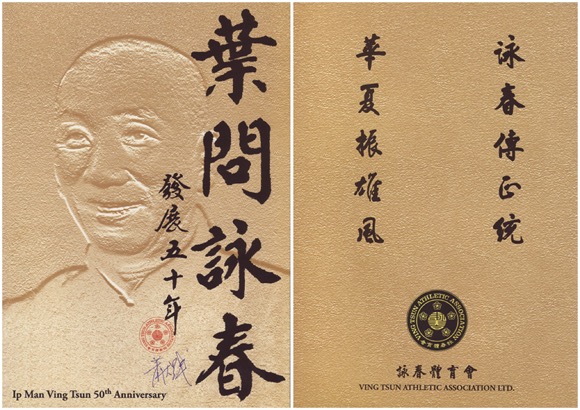 葉問詠春
發展五十年
Ip Man Ving Tsun 50th Anniversary
詠春傳正統
華夏振雄風
VING TSUN ATHLETIC ASSOCIATION
詠春體育會
VING TSUN ATHLETIC ASSOCIATION LTD.